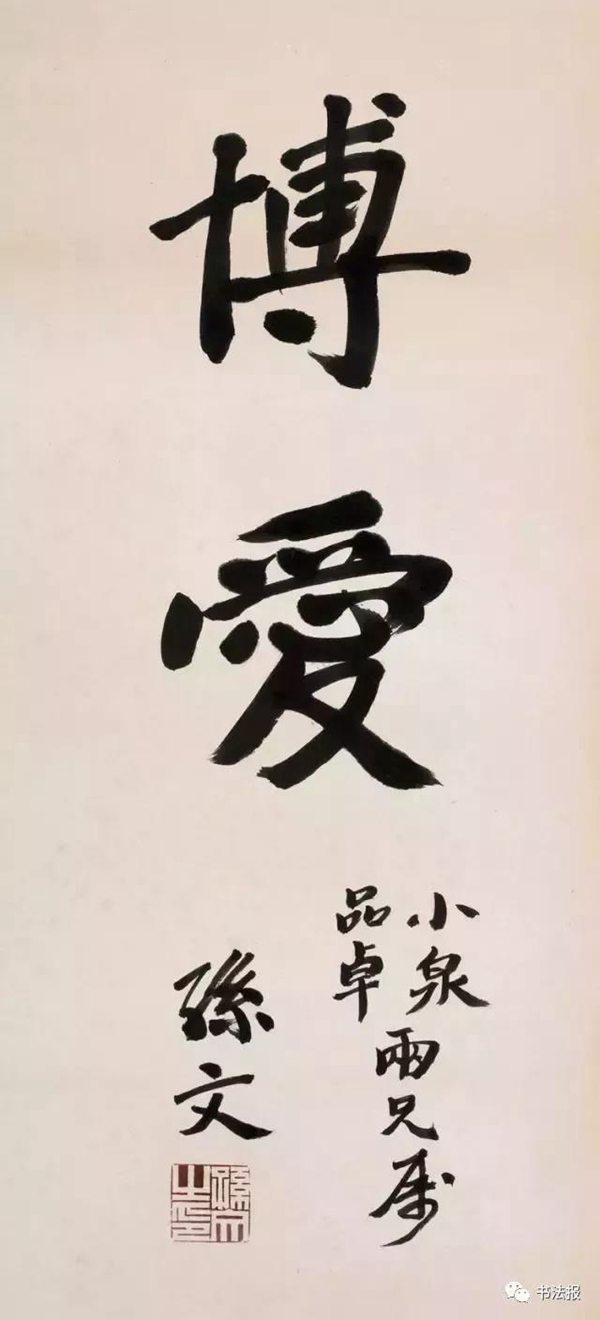 博愛
小泉
品卓
兩兄属
孫文
孫文之印
书法报